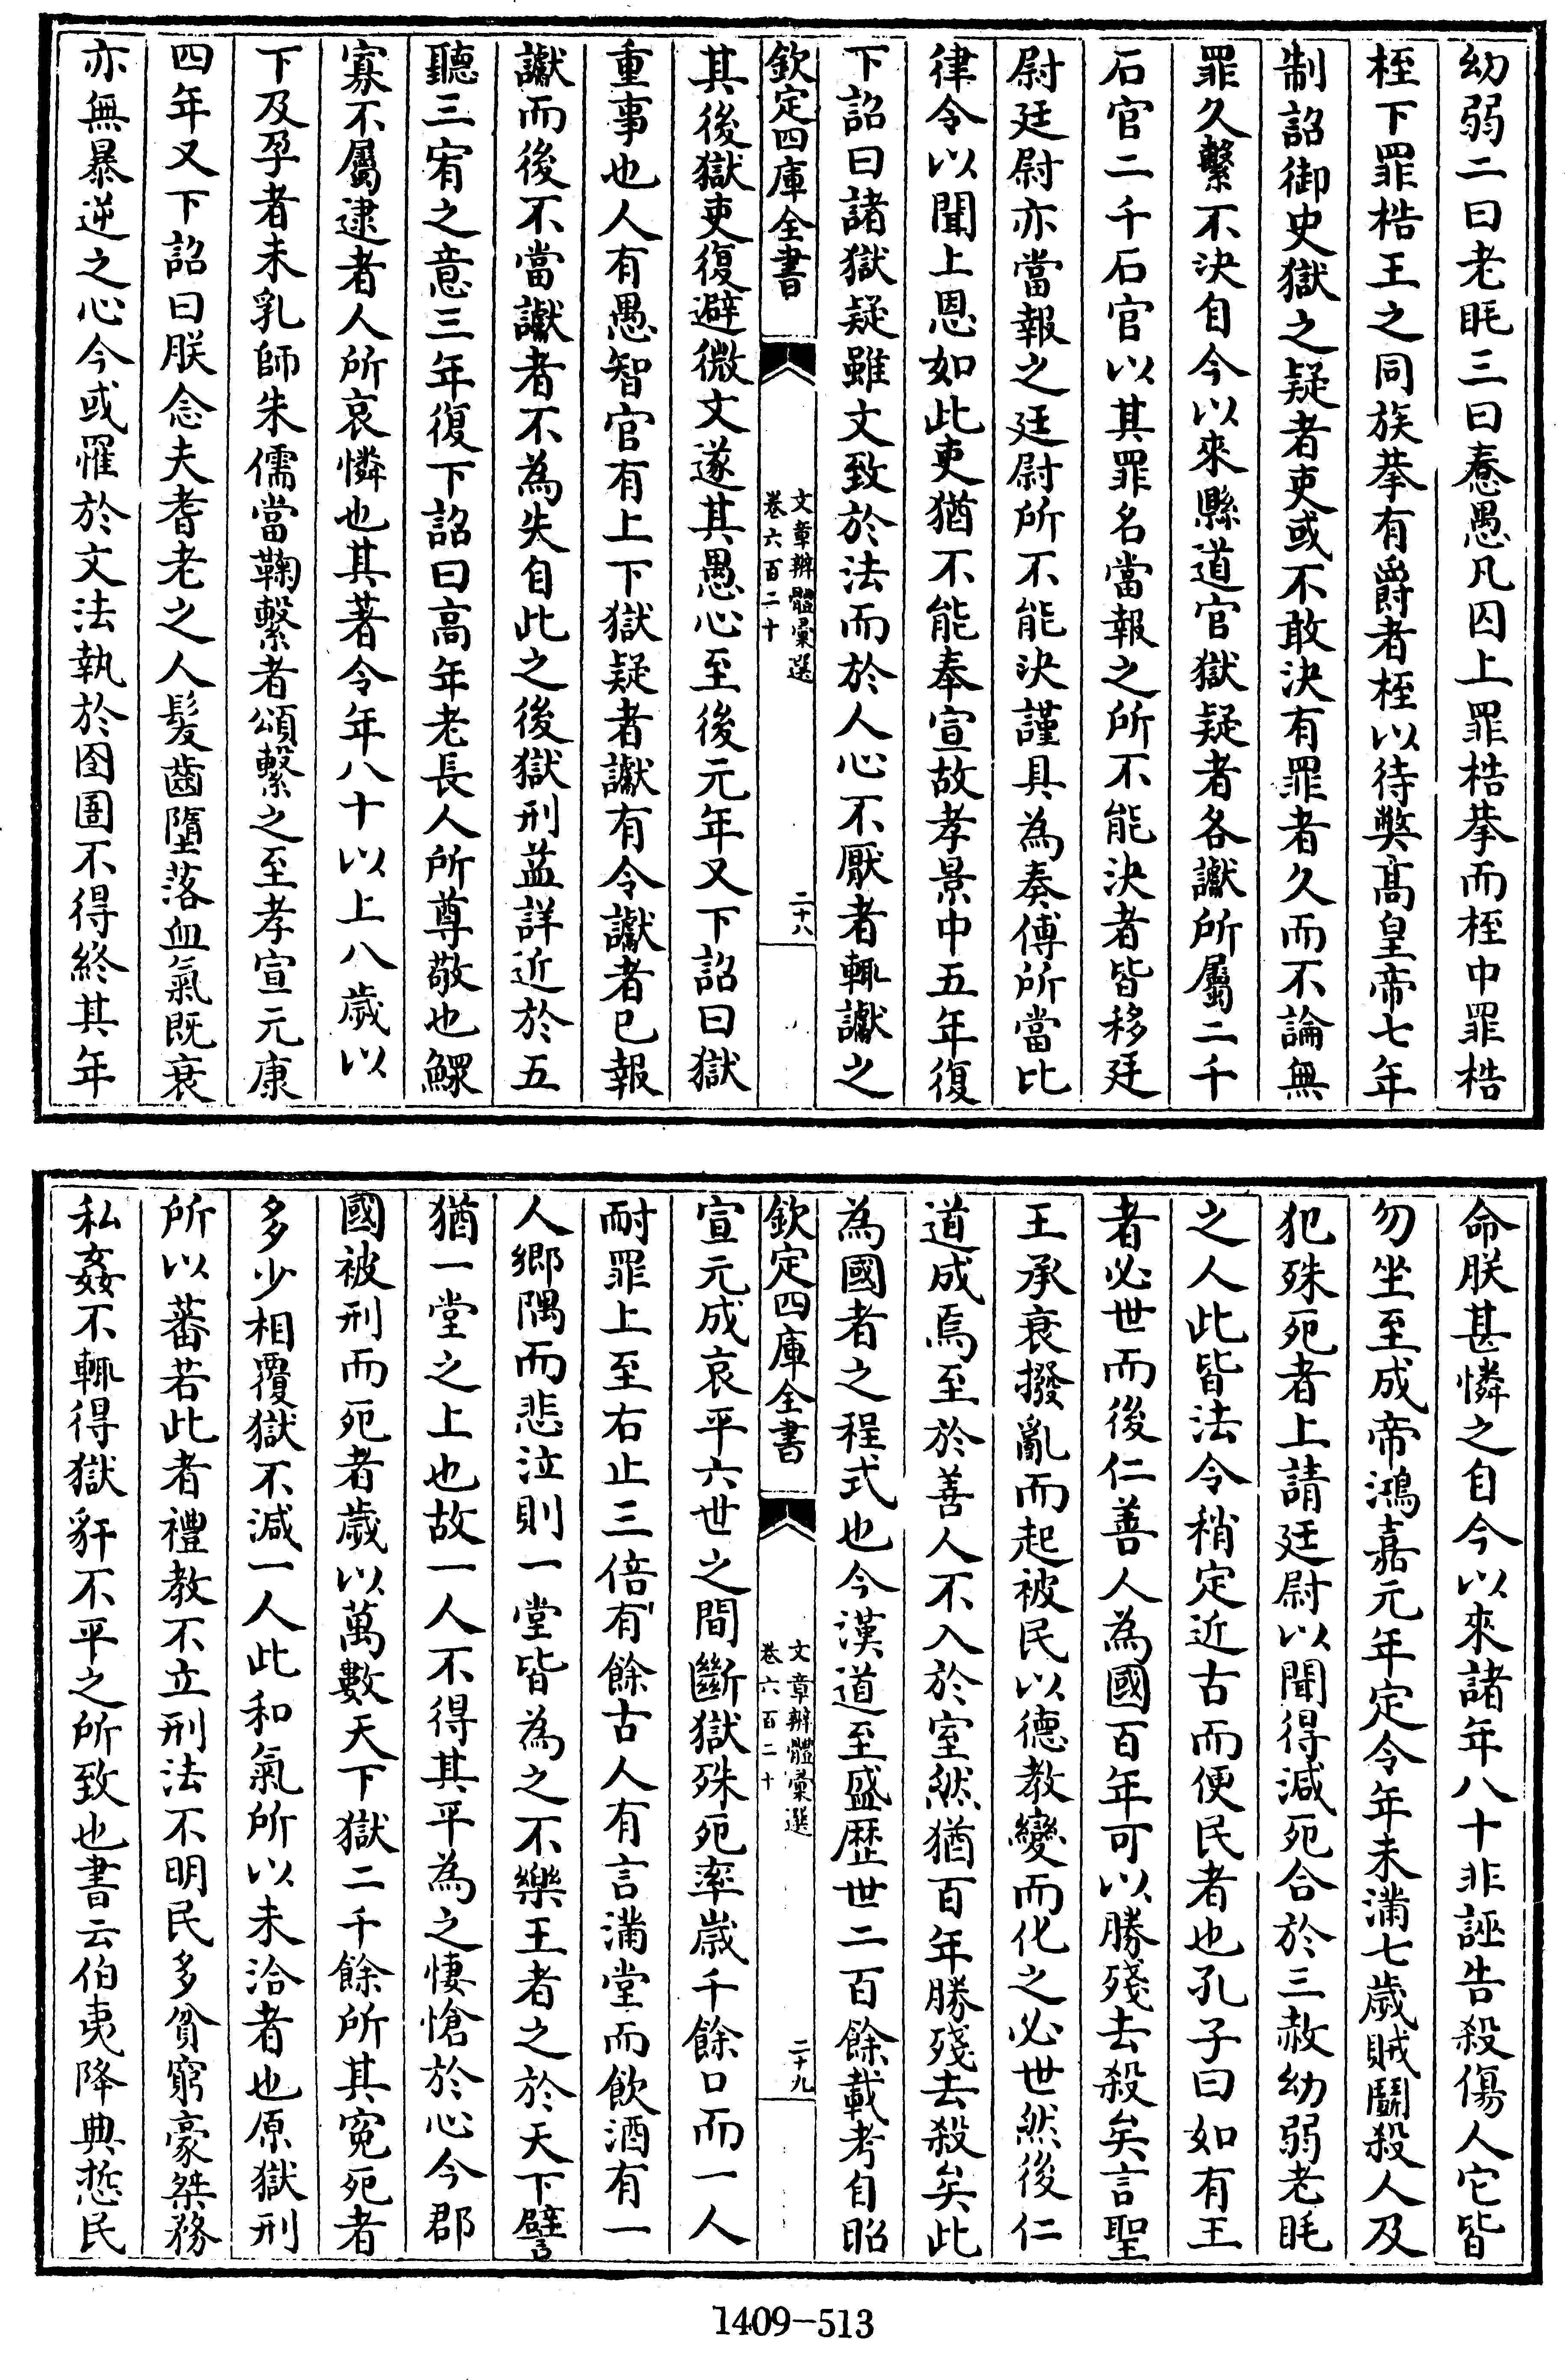 幼弱二曰老眊三曰惷愚凡囚上罪梏拲而桎中罪梏
桎下罪梏王之同族拲有爵者桎以待弊高皇帝七年
制詔御史獄之疑者吏或不敢決有罪者久而不論無
罪久繫不決自今以來縣道官獄疑者各讞所屬二千
石官二千石官以其罪名當報之所不能決者皆移廷
尉廷尉亦當報之廷尉所不能決謹具為奏傅所當比
律令以聞上恩如此吏猶不能奉宣故孝景中五年復
下詔曰諸獄疑雖文致於法而於人心不厭者輒讞之
欽定四庫全書
文章辨體彙選
卷六百二十
二十八
其後獄吏復避微文遂其愚心至後元年又下詔曰獄
重事也人有愚智官有上下獄疑者讞有令讞者已報
讞而後不當讞者不為失自此之後獄刑益詳近於五
聽三宥之意三年復下詔曰高年老長人所尊敬也鰥
寡不屬逮者人所哀憐也其著令年八十以上八歲以
下及孕者未乳師朱儒當鞠繫者頌繫之至孝宣元康
四年又下詔曰朕念夫耆老之人髮齒墮落血氣既衰
亦無暴逆之心今或罹於文法執於囹圄不得終其年
命朕甚憐之自今以來諸年八十非誣告殺傷人它皆
勿坐至成帝鴻嘉元年定令年未滿七歲賊鬭殺人及
犯殊死者上請廷尉以聞得減死合於三赦幼弱老眊
之人此皆法令稍定近古而便民者也孔子曰如有王
者必世而後仁善人為國百年可以勝殘去殺矣言聖
王承衰撥亂而起被民以德教變而化之必世然後仁
道成焉至於善人不入於室然猶百年勝殘去殺矣此
為國者之程式也今漢道至盛歴世二百餘載考自昭
欽定四庫全書
文章辨體彙選
卷六百二十
二十九
宣元成哀平六世之間斷獄殊死率歲千餘口而一人
耐罪上至右止三倍有餘古人有言滿堂而飲酒有一
人鄉隅而悲泣則一堂皆為之不樂王者之於天下譬
猶一堂之上也故一人不得其平為之悽愴於心今郡
國被刑而死者歲以萬數天下獄二千餘所其寃死者
多少相覆獄不減一人此和氣所以未洽者也原獄刑
所以蕃若此者禮教不立刑法不明民多貧窮豪桀務
私姦不輒得獄豻不平之所致也書云伯夷降典悊民
1409-513